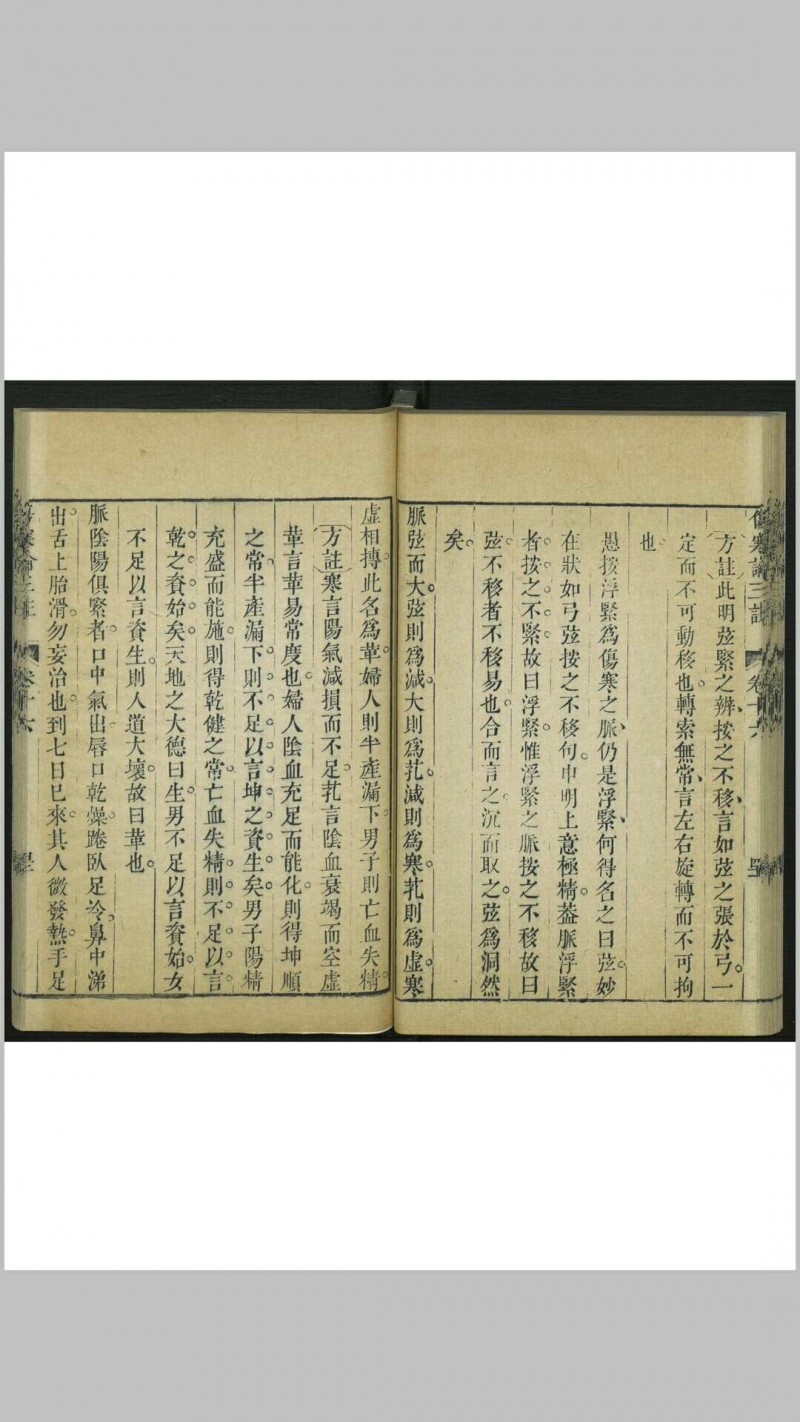 方註此明弦緊之辨按之不移言如弦之張於弓一
定而不可動移也轉索無常言左右旋轉而不可拘
也
愚按浮緊爲傷寒之脈仍是浮緊何得名之曰弦妙
在狀如弓弦按之不移句申明上意極精葢脈浮緊
者按之不緊故曰浮緊惟浮緊之脈按之不移故曰
弦不移者不移易也合而言之沉而取之弦爲洞然
矣
脈弦而大弦則爲減大則爲芤減則爲寒芤則爲虛寒
虛相摶此名爲革婦人則半產漏下男子則亡血失精
方註寒言陽氣減損而不足芤言陰血衰竭而空虛
革言革易常度也婦人陰血充足而能化則得坤順
之常半產漏下則不足以言坤之資生矣男子陽精
充盛而能施則得乾健之常亡血失精則不足以言
乾之資始矣天地之大德曰生男不足以言資始女
不足以言資生則人道大壞故曰革也
脈陰陽俱緊者口中氣出唇口乾燥踡臥足冷鼻中涕
出舌上胎滑勿妄治也到七日已來其人微發熱手足
卷十六